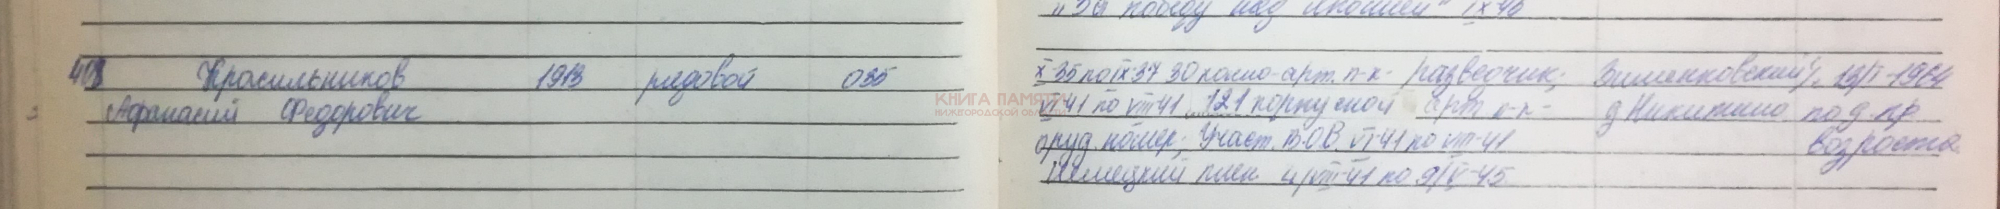 "За победу над Японией" IX 45
403 Красильников 1913 рядовой 035 X-35 по IX-37 30 арт. п-к- разведчик; Зименковский с/с 13/I-1964
Афанасий Федорович VI 41 по VIII 41 121 корпусной арт п-к- д Никитино по д. пр.
оруд. номер; Участ. В.О.В. VI-41 по VIII-41 возраста
Немецкий плен 4/VIII-41 по 9/V-45
КНИГА ПАМЯТИ
НИЖЕГОРОДСКОЙ ОБЛАСТИ